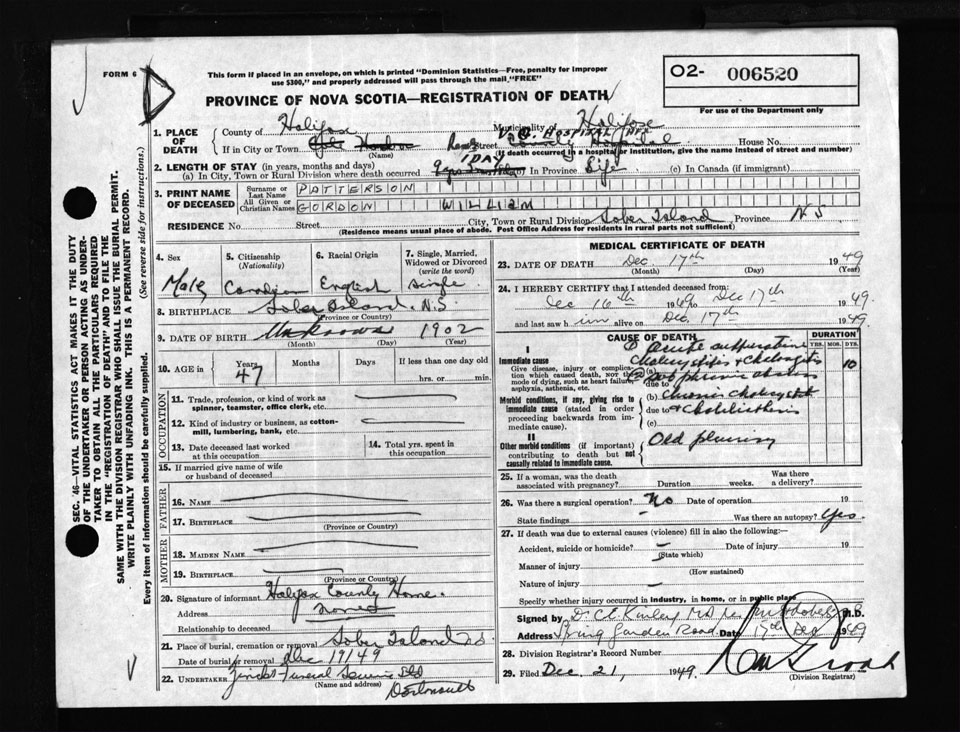 FORM 6
This form if placed in an envelope, on which is printed "Dominion Statistics—Free, penalty for improper
use $300," and properly addressed will pass through the mail, "FREE"
O2- 006520
For use of the Department only
PROVINCE OF NOVA SCOTIA—REGISTRATION OF DEATH
1. PLACE OF DEATH
County of Halifax Municipality of Halifax
If in City or Town (Name) Street V.G. HOSPITAL HFX House No.
(If death occurred in a hospital or institution, give the name instead of street and number)
2. LENGTH OF STAY (in years, months and days)
(a) In City, Town or Rural Division where death occurred 1 DAY (b) In Province Life (c) In Canada (if immigrant)
3. PRINT NAME OF DECEASED
Surname or Last Name PATTERSON
All Given or Christian Names GORDON WILLIAM
RESIDENCE No. Street City, Town or Rural Division Sober Island Province N S
(Residence means usual place of abode. Post Office Address for residents in rural parts not sufficient)
4. Sex Male
5. Citizenship (Nationality) Canadian
6. Racial Origin English
7. Single, Married, Widowed or Divorced (write the word) Single
8. BIRTHPLACE Sober Island N.S
(Province or Country)
9. DATE OF BIRTH Unknown 1902
(Month) (Day) (Year)
10. AGE IN Years 47 Months Days If less than one day old
hrs. or min.
OCCUPATION
11. Trade, profession, or kind of work as
spinner, teamster, office clerk, etc.
12. Kind of industry or business, as cotton-
mill, lumbering, bank, etc.
13. Date deceased last worked
at this occupation
14. Total yrs. spent in
this occupation
15. If married give name of wife
or husband of deceased
FATHER
16. NAME
17. BIRTHPLACE
(Province or Country)
MOTHER
18. MAIDEN NAME
19. BIRTHPLACE
(Province or Country)
20. Signature of informant Halifax County Home.
Address
Relationship to deceased None
21. Place of burial, cremation or removal Sober Island N.S
Date of burial or removal Dec 19/49
22. UNDERTAKER Funeral Service Ltd
(Name and address)
MEDICAL CERTIFICATE OF DEATH
23. DATE OF DEATH Dec. 17th 1949
(Month) (Day) (Year)
24. I HEREBY CERTIFY that I attended deceased from:
Dec 16th 1949 to Dec 17th 1949.
and last saw him alive on Dec 17th 1949.
CAUSE OF DEATH
DURATION
YRS. MOS. DYS.
I
Immediate cause
Give disease, injury or complica-
tion which caused death, not the
mode of dying, such as heart failure,
asphyxia, asthenia, etc.
Acute suppurative
(a) 10
due to
Morbid conditions, if any, giving rise to
immediate cause (stated in order
proceeding backwards from im-
mediate cause).
(b) Chronic
due to
(c)
II
Other morbid conditions (if important)
contributing to death but not
causally related to immediate cause.
Old pleurisy
25. If a woman, was the death
associated with pregnancy? Duration weeks. Was there
a delivery?
26. Was there a surgical operation? No Date of operation 19
State findings Was there an autopsy? Yes.
27. If death was due to external causes (violence) fill in also the following:—
Accident, suicide or homicide? — Date of injury 19
(State which)
Manner of injury
(How sustained)
Nature of injury —
Specify whether injury occurred in industry, in home, or in public place
Signed by Dr. M.D.
Address Spring Garden Road Date 17th Dec 1949
28. Division Registrar's Record Number
29. Filed Dec. 21, 1949.
(Division Registrar)
SEC. '46—VITAL STATISTICS ACT MAKES IT THE DUTY
OF THE UNDERTAKER OR PERSON ACTING AS UNDER-
TAKER TO OBTAIN ALL THE PARTICULARS REQUIRED
IN THE "REGISTRATION OF DEATH" AND TO FILE THE
SAME WITH THE DIVISION REGISTRAR WHO SHALL ISSUE THE BURIAL PERMIT.
WRITE PLAINLY WITH UNFADING INK. THIS IS A PERMANENT RECORD.
Every item of information should be carefully supplied. (See reverse side for instructions.)